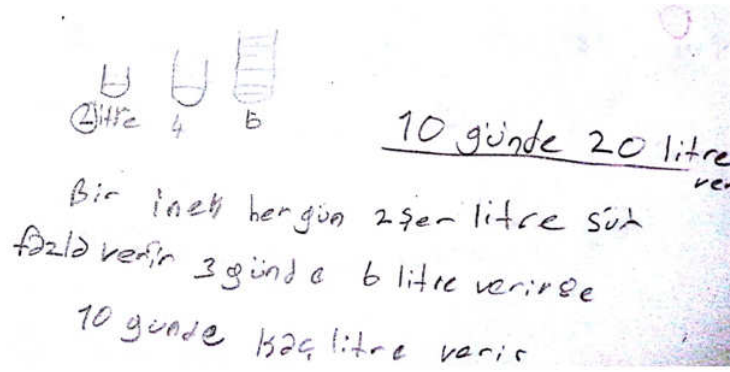 2 litre 4 6
10 günde 20 litre
ver
Bir inek hergün 2şer litre süt
fazla verir 3 günde 6 litre verirse
10 günde kaç litre verir